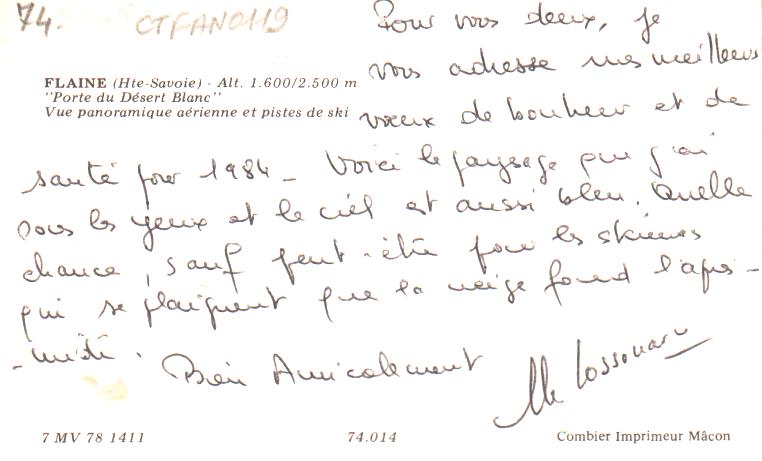 74.
CTFAN0119
Pour vous deux, je
vous adresse mes meilleurs
FLAINE (Hte-Savoie) - Alt. 1.600/2.500 m
"Porte du Désert Blanc"
Vue panoramique aérienne et pistes de ski
vœux de bonheur et de
santé pour 1984 - Voici le paysage que j'ai
sous les yeux et le ciel est aussi bleu. Quelle
chance, sauf peut-être pour les skieurs
qui se plaignent que la neige fond l'après-
-midi. Bien Amicalement
7 MV 78 1411
74.014
Combier Imprimeur Mâcon